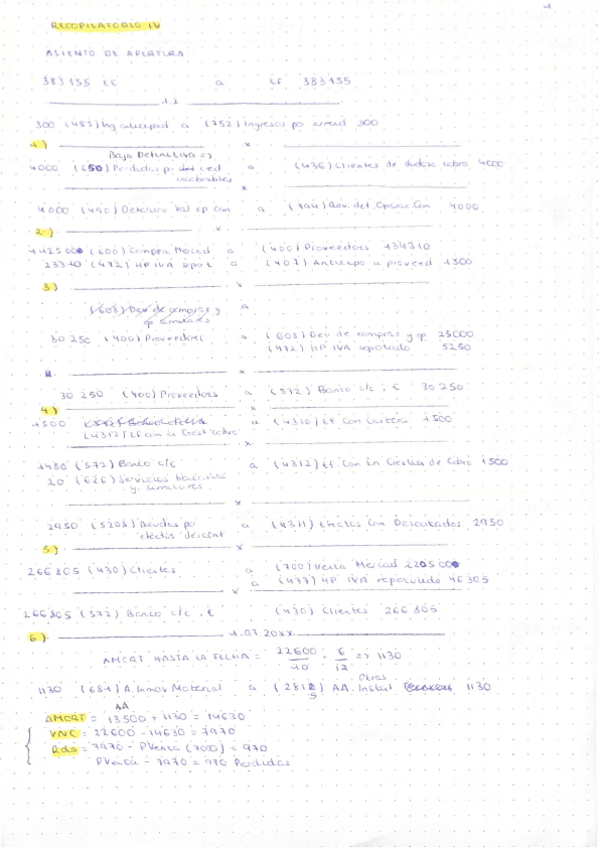 RECOPILATORIO IV
ASIENTO DE APERTURA
383 155 a 383 155
300 (485) Ing anticipad a (752) Ingresos po arrend 300
1) x
Baja Definitiva =>
4000 (650) Perdidas po cred a (436) Clientes de dudoso cobro 4000
incobrables
x
4000 (490) Deterioro Val cp com a (794) Rev. det. Com 4000
2) x
(600) Compra Mercad a (400) Proveedores 134310
23310 (472) HP IVA sopot a (407) Anticipo a proveed 1500
3) x
(608) Dev de compras y a
op similares
30 250 (400) Proveedores a (608) Dev de compras y op 25000
(472) HP IVA soportado 5250
30 250 (400) Proveedores a (572) Banco c/c . € 30 250
4) x
1500 a (4310) Ef Com Cartera 1500
(4312) Ef com en Gest cobro
x
1480 (572) Banco c/c a (4312) Ef. Com En Gestion de Cobro 1500
20 (626) Servicios bancarios
y similares
x
2950 (5208) Deudas po a (4311) Efectos Com Descontados 2950
efectos descont
5) x
266 805 (430) Clientes a (700) Venta Mercad
a (477) HP IVA repercutido 46 305
x
266 805 (572) Banco c/c . € (430) Clientes 266 805
6) 1.07.20XX
AMORT HASTA LA FECHA = 22600 / 10 · 6 / 12 => 1130
Otras
1130 (681) A. Inmov Material a AA. Instal 1130
AA
AMORT = 13500 + 1130 = 14630
VNC = 22600 - 14630 = 7970
Rdo = 7970 - PVenta (7000) = 970
PVenta - 7970 = 970 Perdidas